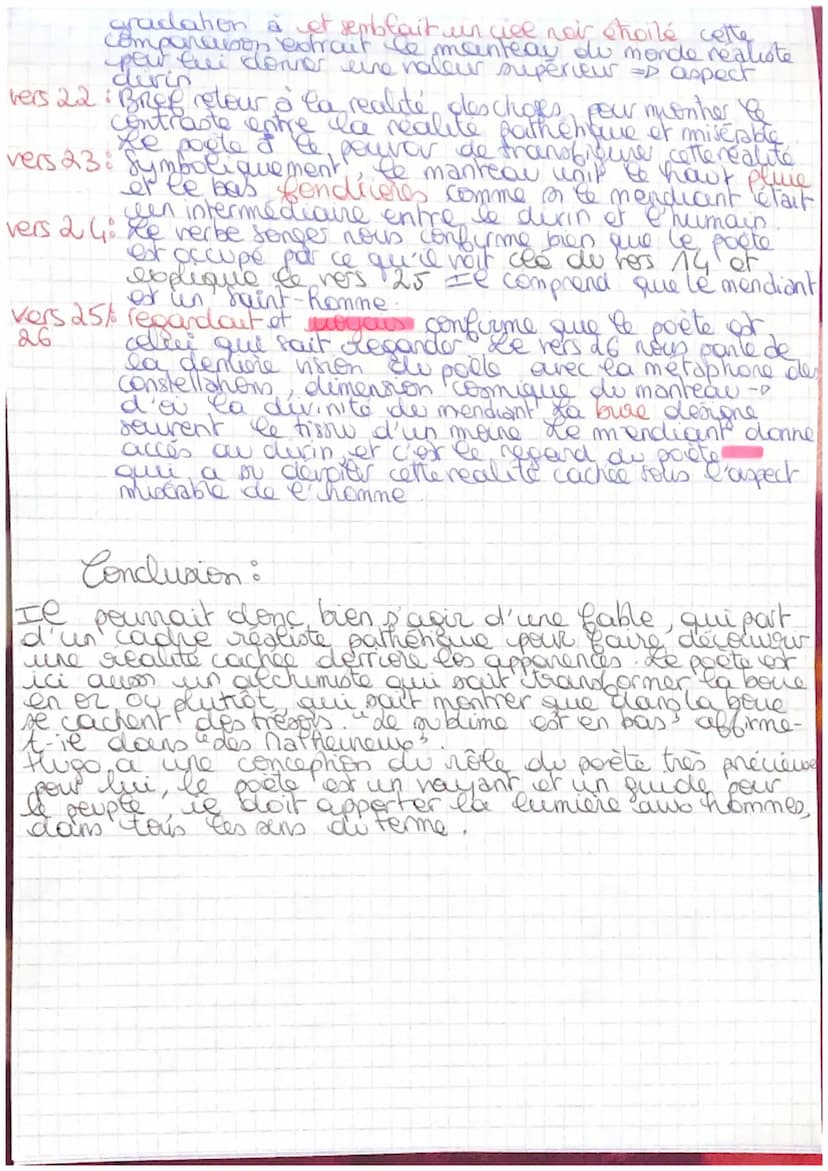 gradation à et semblait un ciel noir étoilé cette
comparaison extrait le manteau du monde réaliste
pour lui donner une valeur supérieur => aspect
divin
vers 22 : Bref retour à la réalité des choses, pour montrer le
contraste entre la réalité pathétique et misérable.
Le poète a le pouvoir de transfigurer cette réalité
vers 23 : Symboliquement, le manteau unit le haut pluie
et le bas fondrières comme si le mendiant était
un intermédiaire entre le divin et l'humain.
vers 24 : Le verbe songer nous confirme bien que le poète
est occupé par ce qu'il voit clé du vers 14 et
explique le vers 25 Il comprend que le mendiant
est un saint-homme.
vers 25/ regardait et voyais confirme que le poète est
26 celui qui sait regarder. Le vers 26 nous parle de
la dernière vision du poète avec la métaphore des
constellations, dimension cosmique du manteau ->
d'où la divinité du mendiant. La bure désigne
souvent le tissu d'un moine. Le mendiant donne
accès au divin, et c'est le regard du poète
qui a su cette réalité cachée sous l'aspect
misérable de l'homme.
Conclusion :
Il pourrait donc bien s'agir d'une fable, qui part
d'un cadre réaliste pathétique pour faire découvrir
une réalité cachée derrière les apparences. Le poète est
ici aussi un alchimiste qui sait transformer la boue
en or ou plutôt, qui sait montrer que dans la boue
se cachent des trésors. "Le sublime est en bas" affirme-
t-il dans "Les Malheureux".
Hugo a une conception du rôle du poète très précieuse
pour lui, le poète est un voyant et un guide pour
le peuple, il doit apporter la lumière aux hommes,
dans tous les sens du terme.